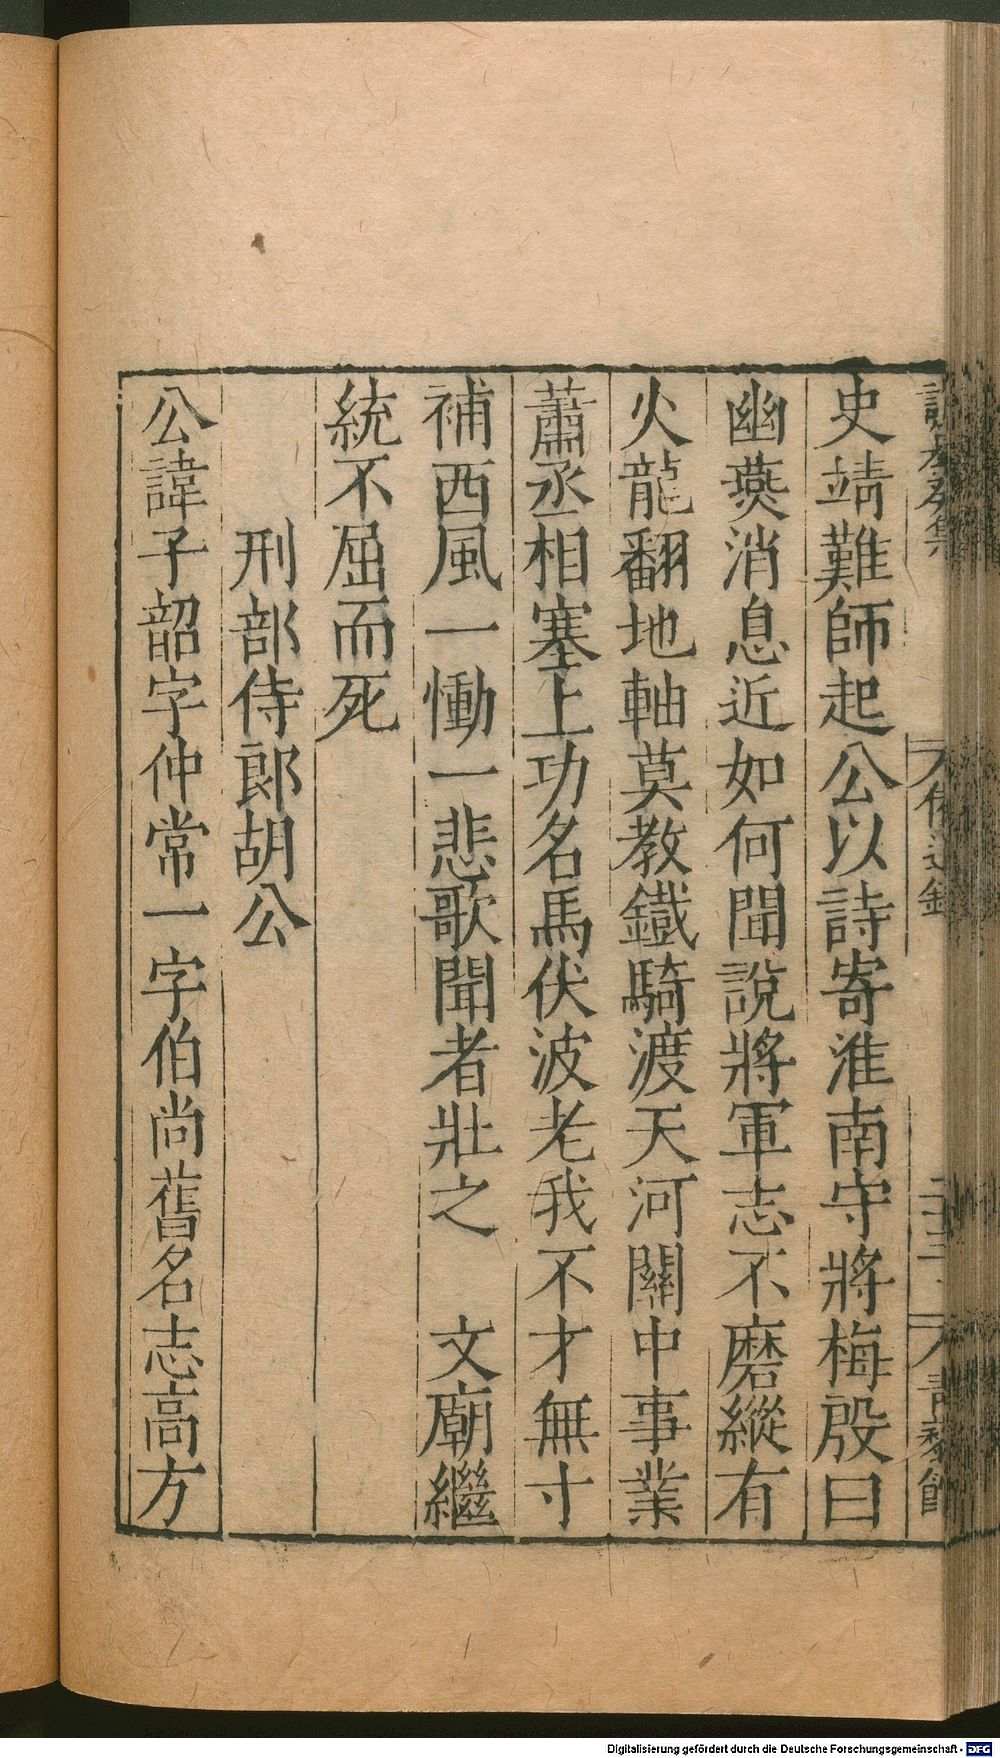 史靖難師起公以詩寄淮南守將梅殷曰
幽燕消息近如何聞說將軍志不磨縱有
火龍翻地軸莫教鐵騎渡天河關中事業
蕭丞相塞上功名馬伏波老我不才無寸
補西風一慟一悲歌聞者壯之 文廟繼
統不屈而死
刑部侍郎胡公
公諱子韶字仲常一字伯尚舊名志高方
Digitalisierung gefördert durch die Deutsche Forschungsgemeinschaft - DFG